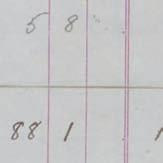 5 8
88 1 1